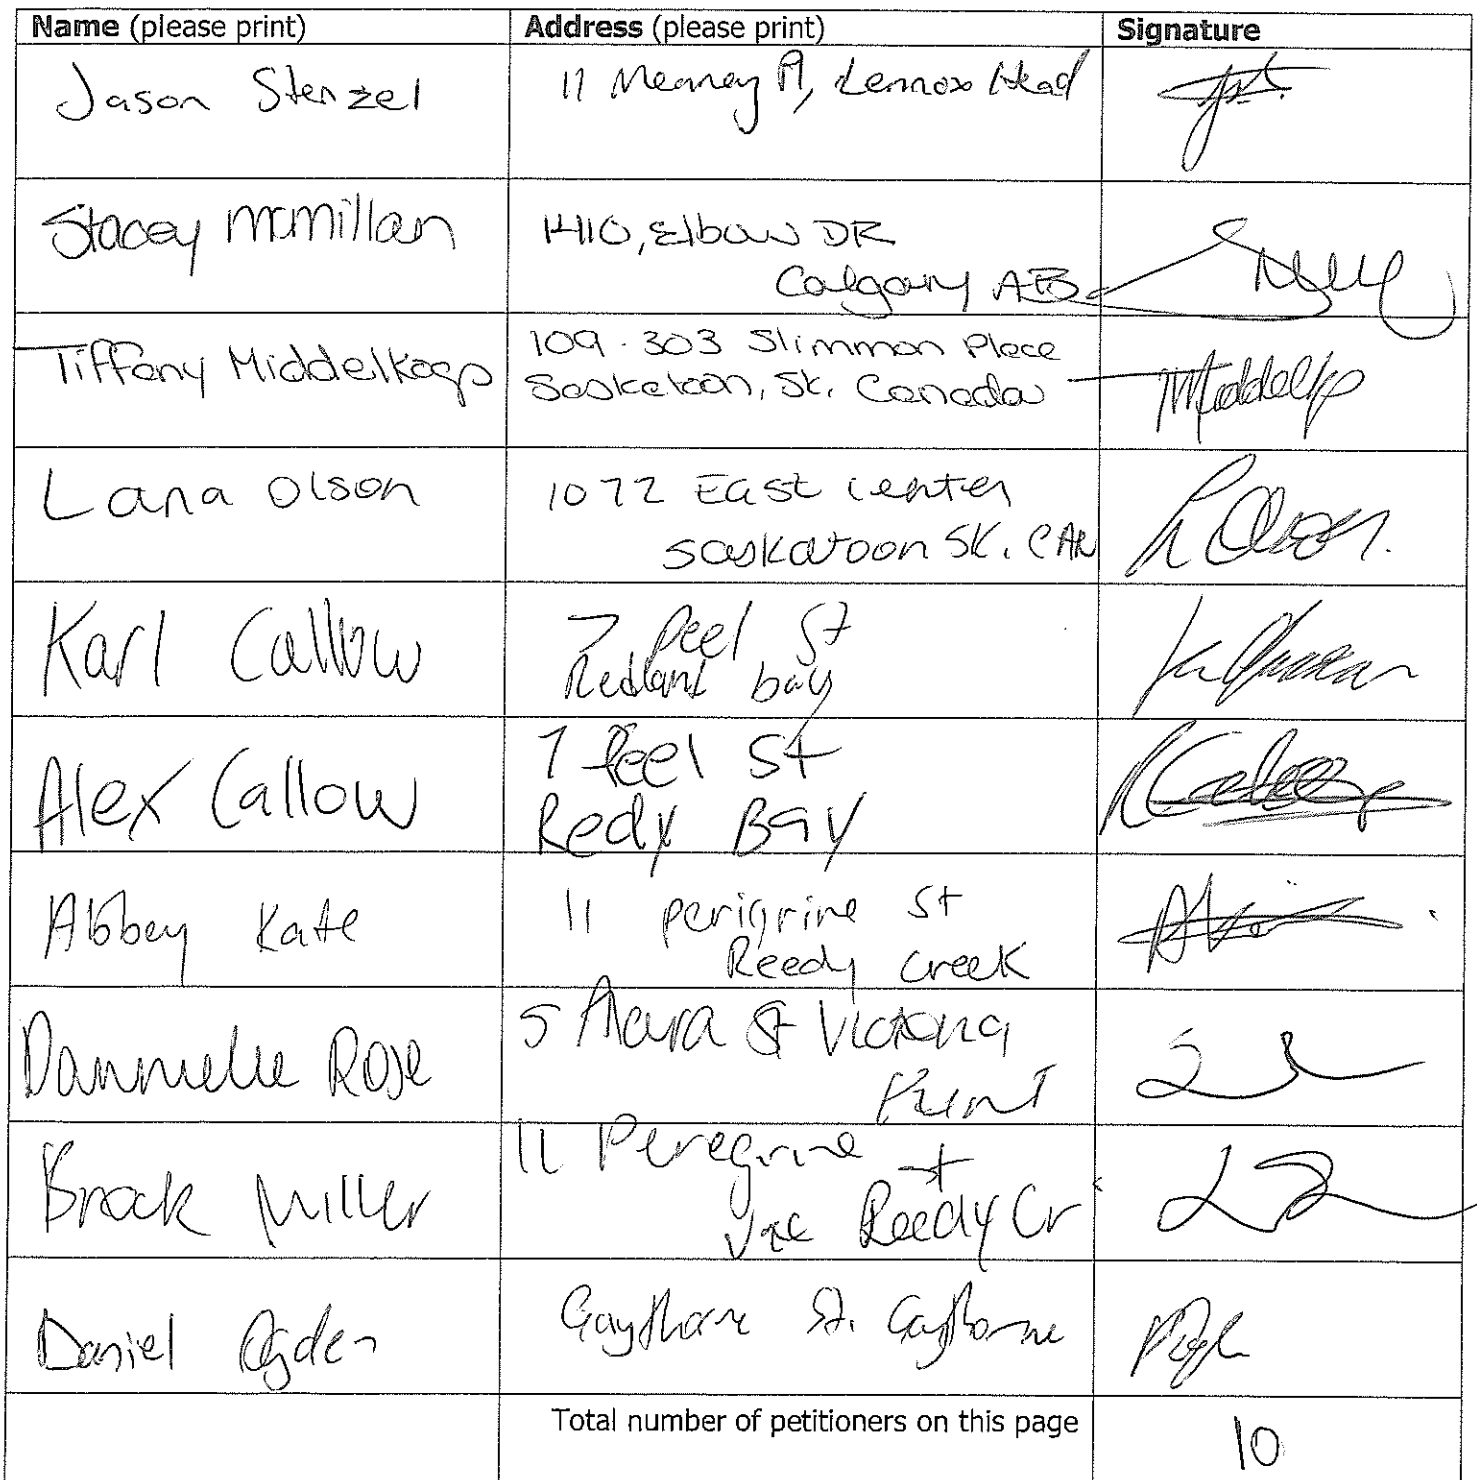 Name (please print) Address (please print) Signature
Jason Stenzel 11 Meaney Pl, Lennox Head
Stacey McMillan 1410, Elbow DR
Calgary AB
Tiffany Middelkoop 109-303 Slimmon Place
Saskatoon, SK. Canada
Lana Olson 1072 East center
Saskatoon SK. CAN
Karl Callow 7 Peel St
Redland bay
Alex Callow 7 Peel St
Redy Bay
Abbey Kate 11 perigrine St
Reedy Creek
Dannielle Rose 5 St Victoria
Point
Brock Miller 11 Peregrine
Reedy Cr
Daniel Ogden Gaythorne St. Gaythorne
Total number of petitioners on this page 10